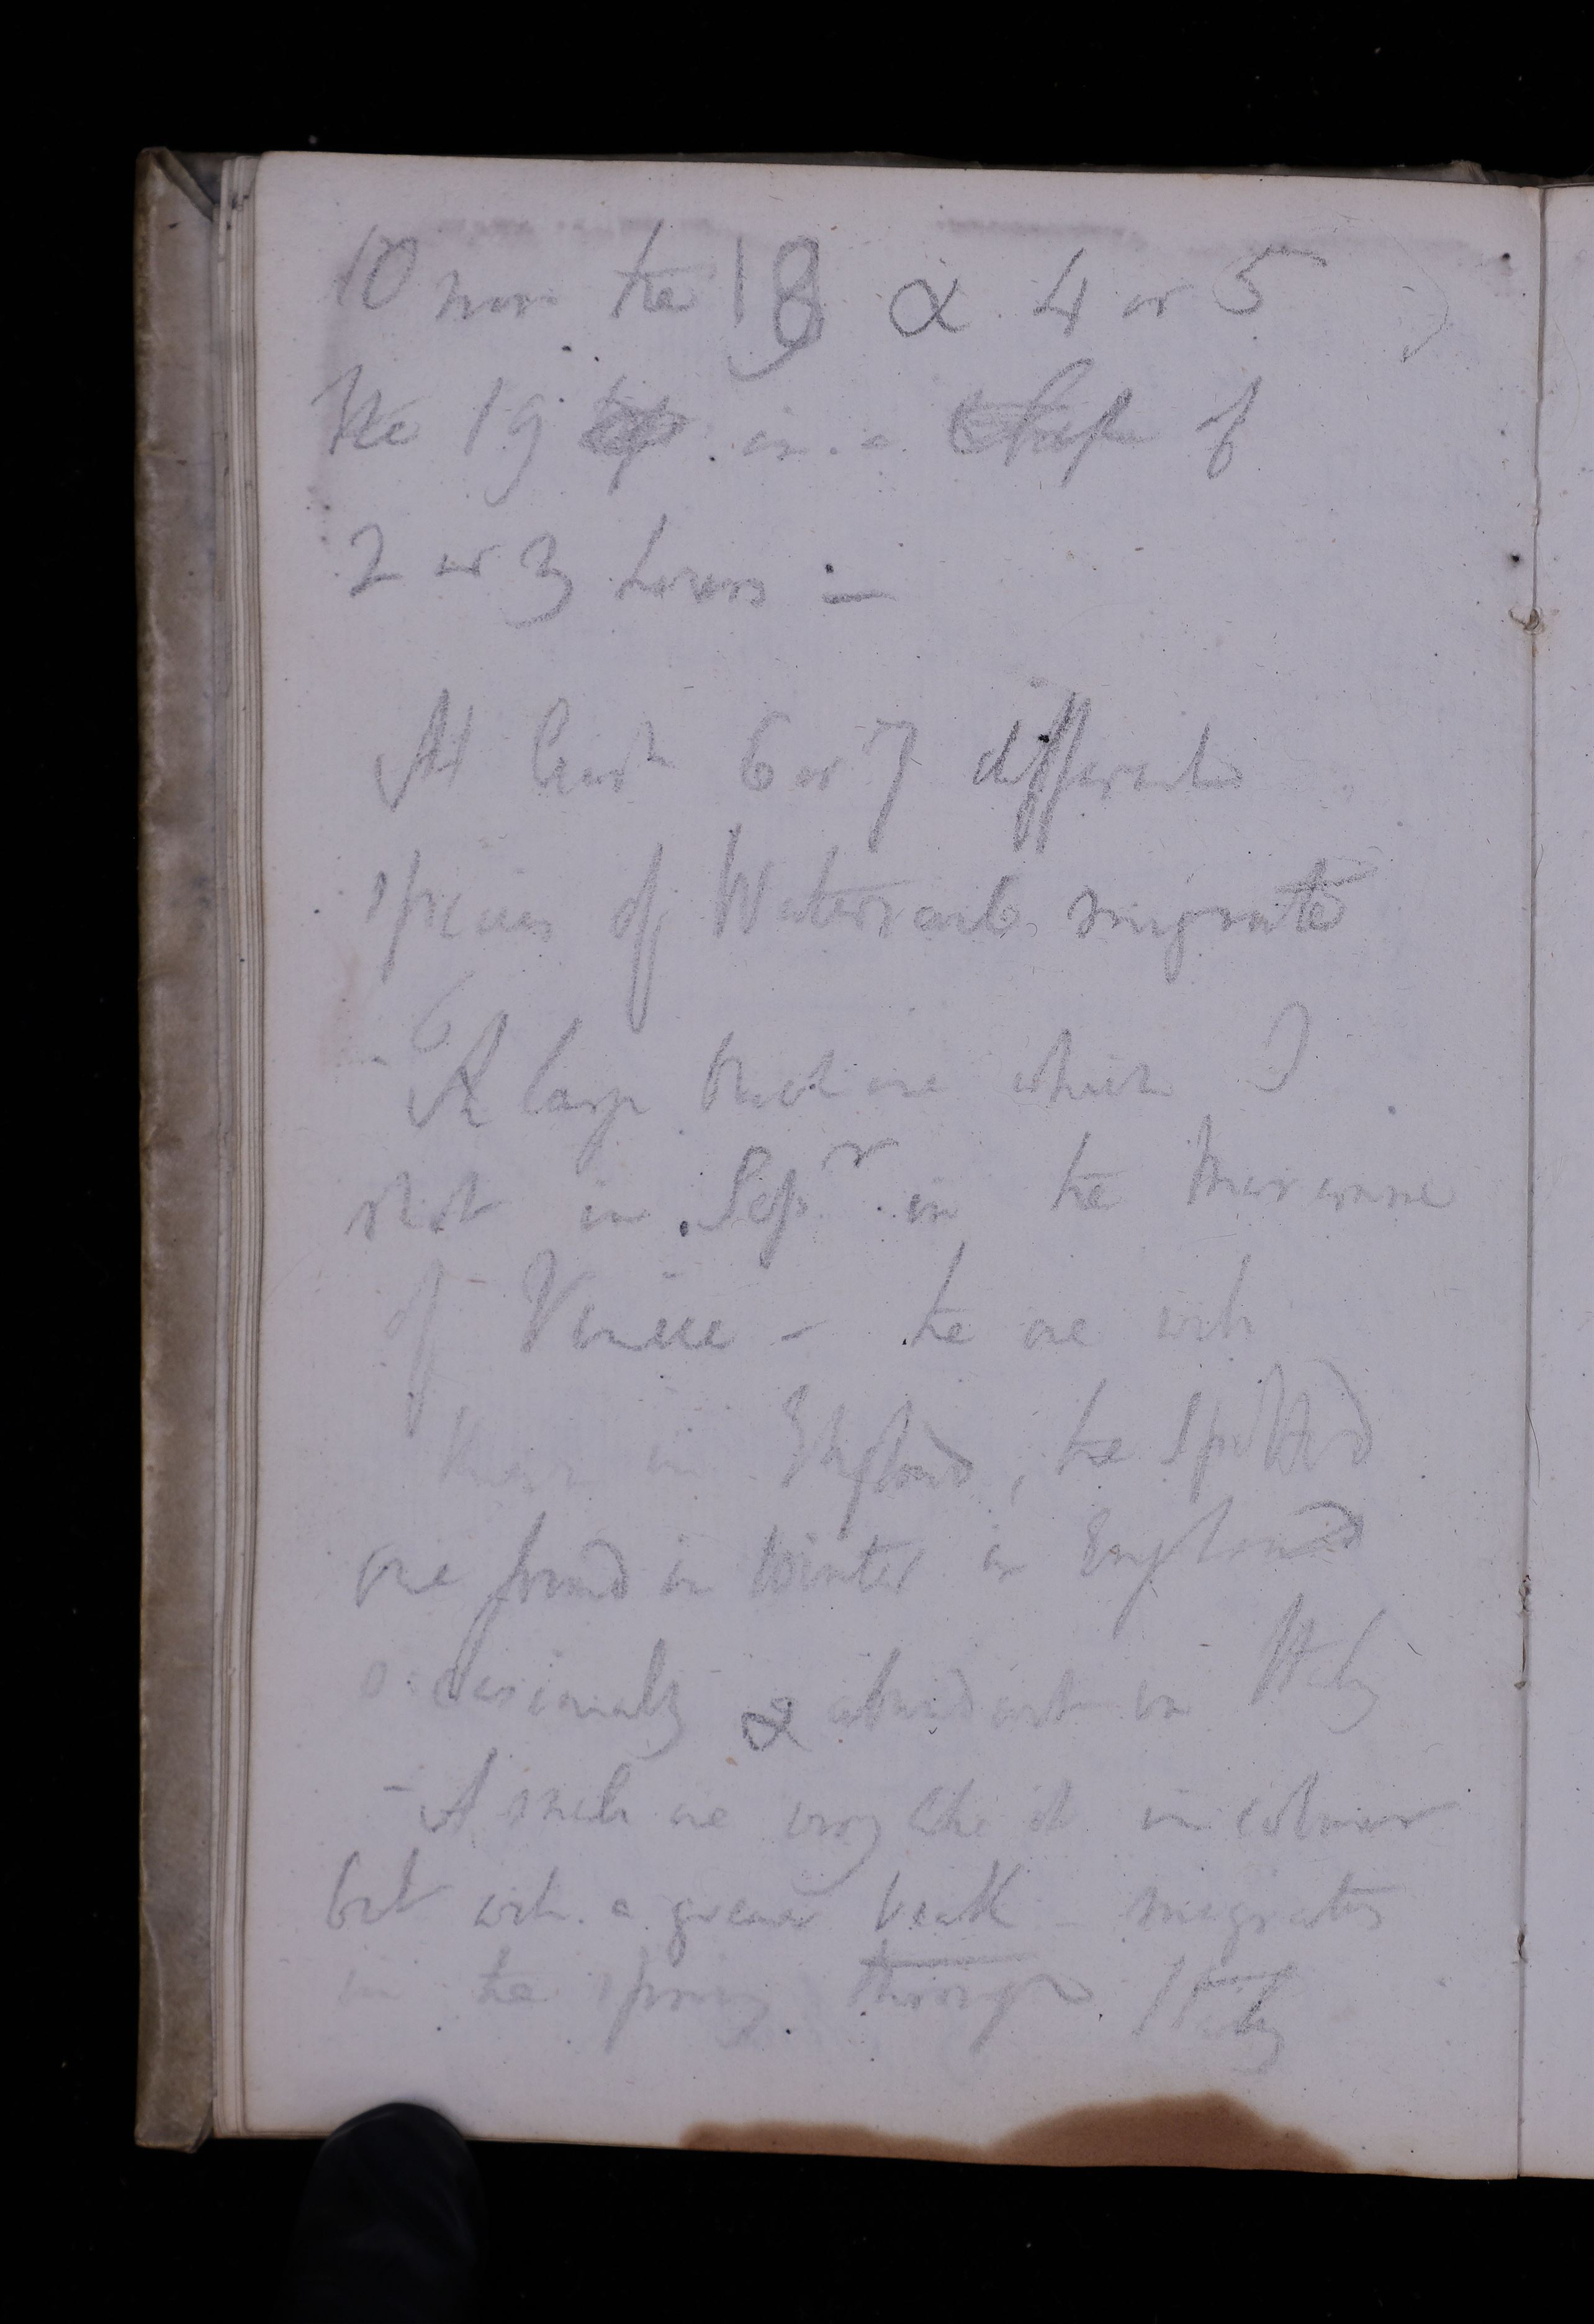 10 more the 18 & 4 or 5
the 19 in a of
2 or 3 hours -
At least 6 or 7 different
species of Waterrails migrate
A large black one which I
shot in Sepr in the Maremme
of Venice - the one wch
known in England, the spotted
one found in Winter in England
occasionally & abundant in Italy
- A small one very like it in colour
but with a greener beak - migrates
in the spring through Italy